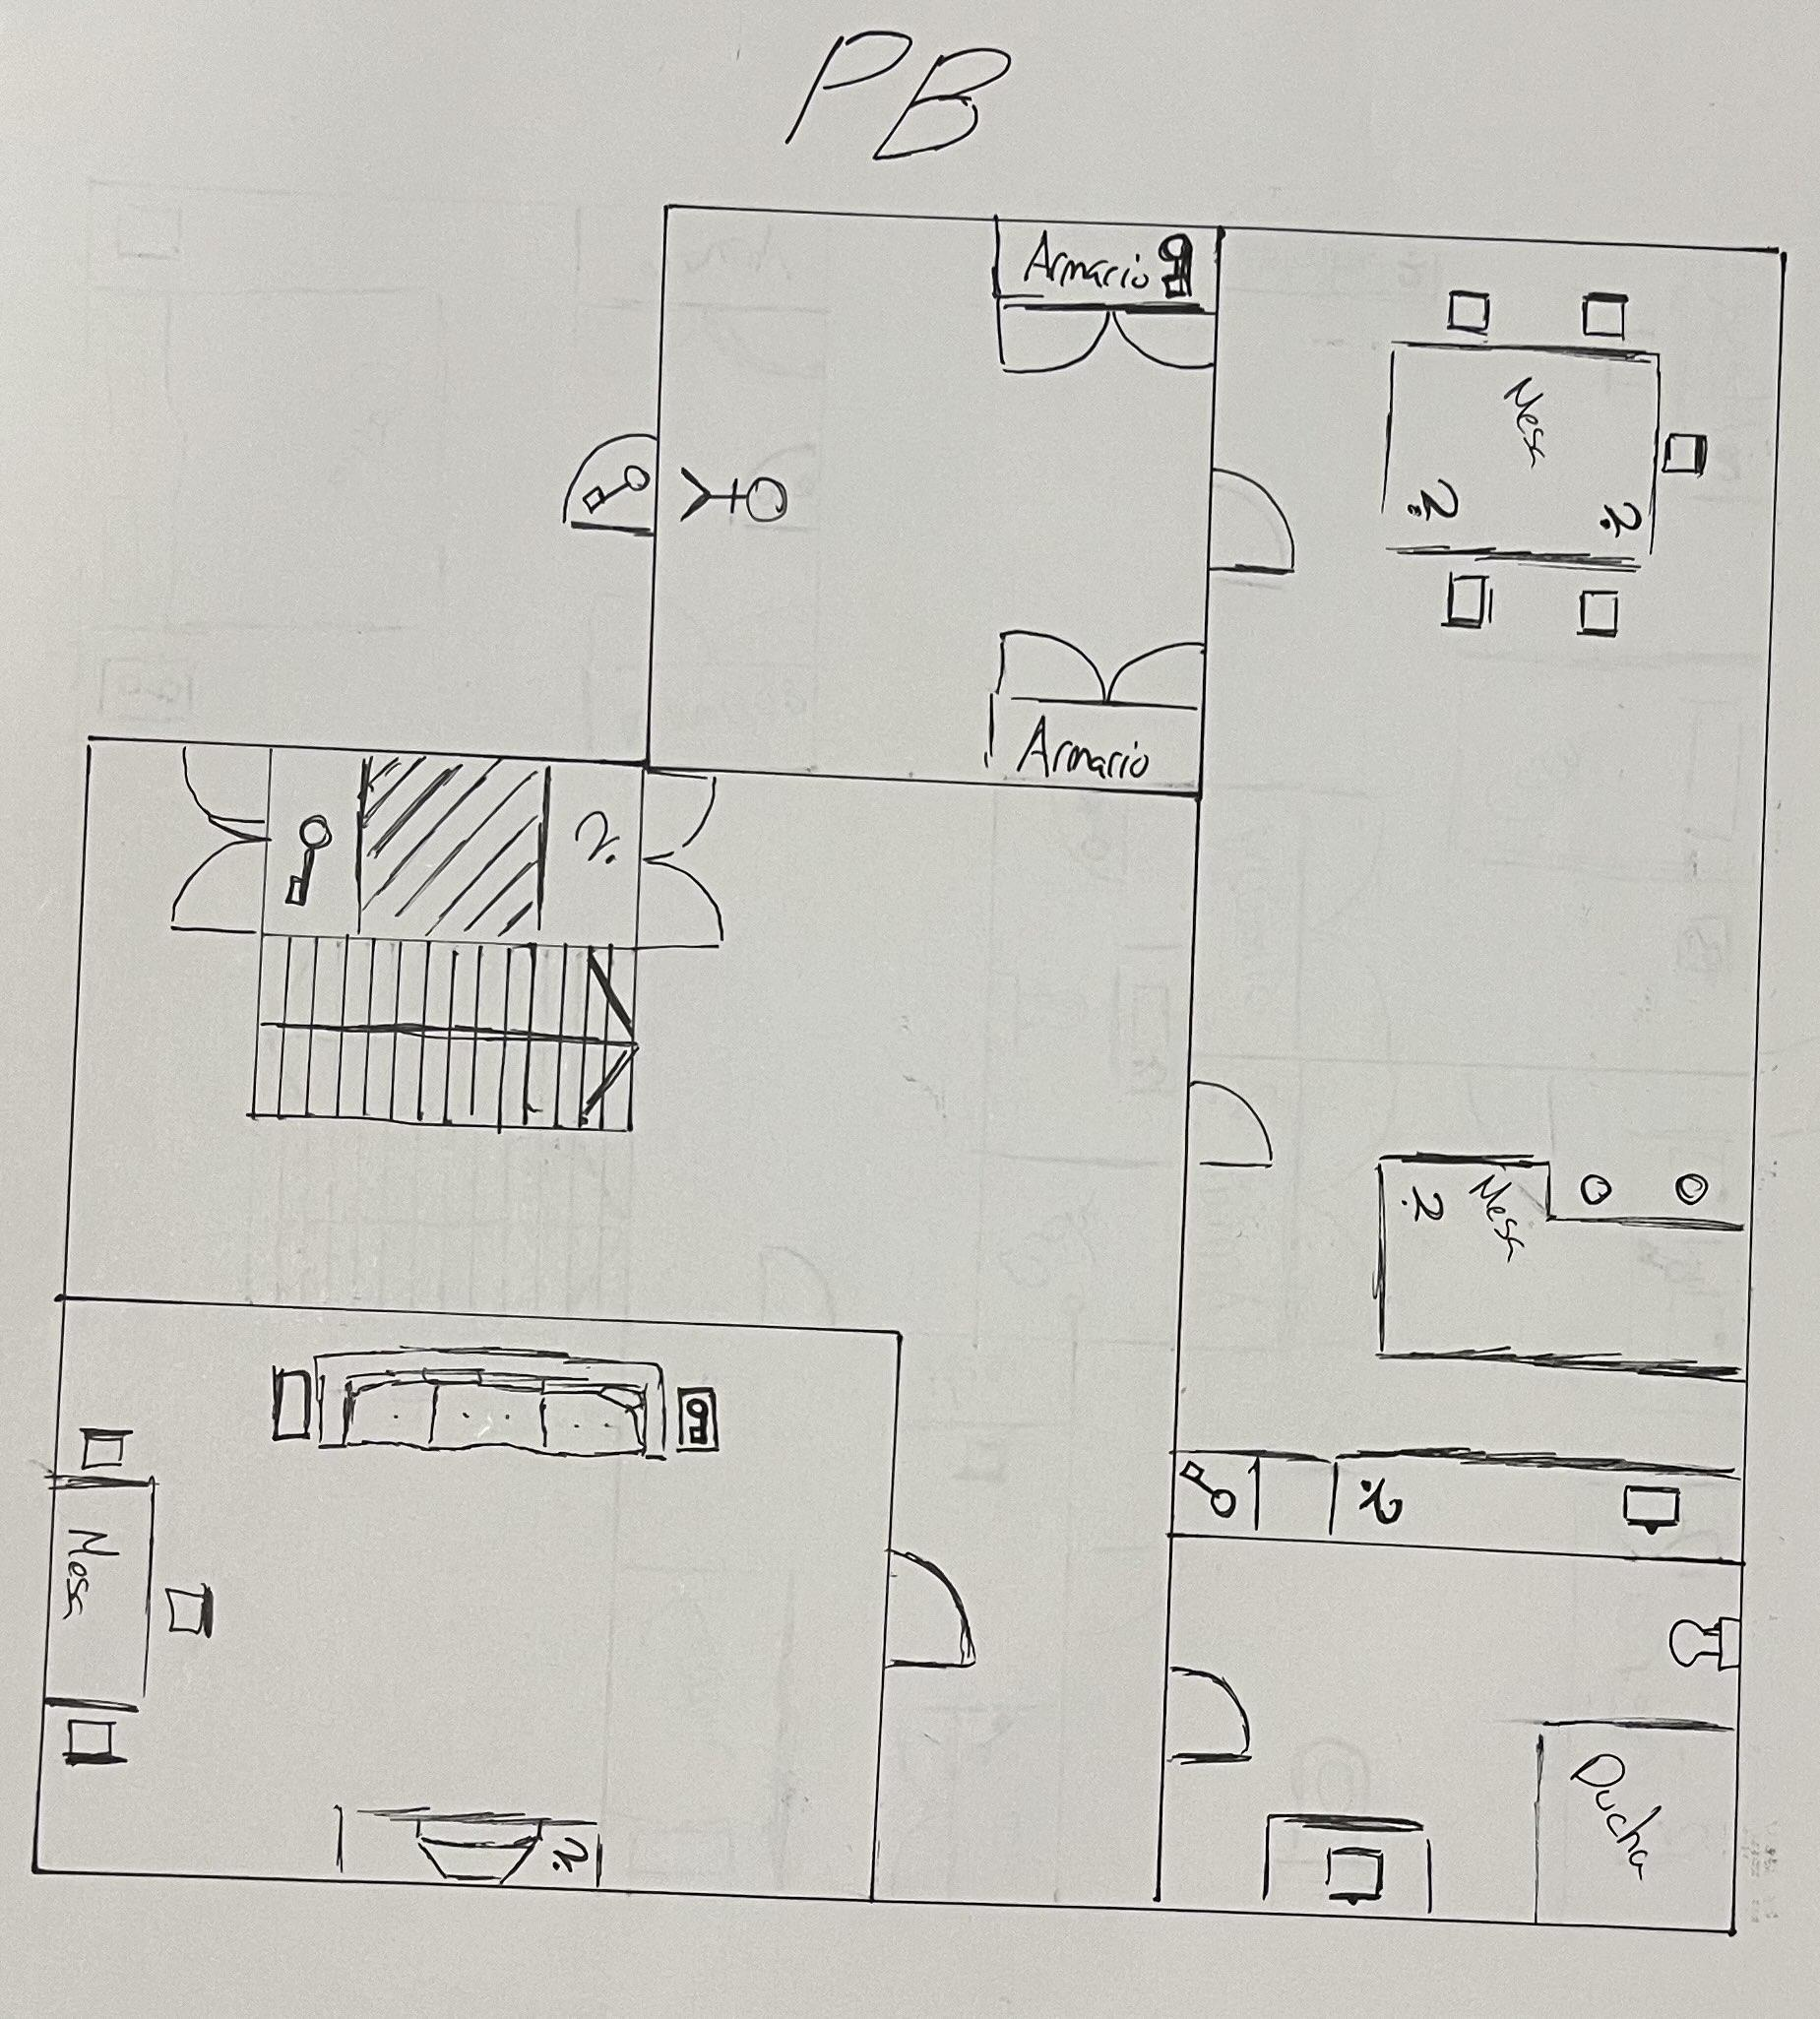 PB
Armario
Mesa
?
?
Armario
?
Mesa
?
?
Mesa
?
Ducha